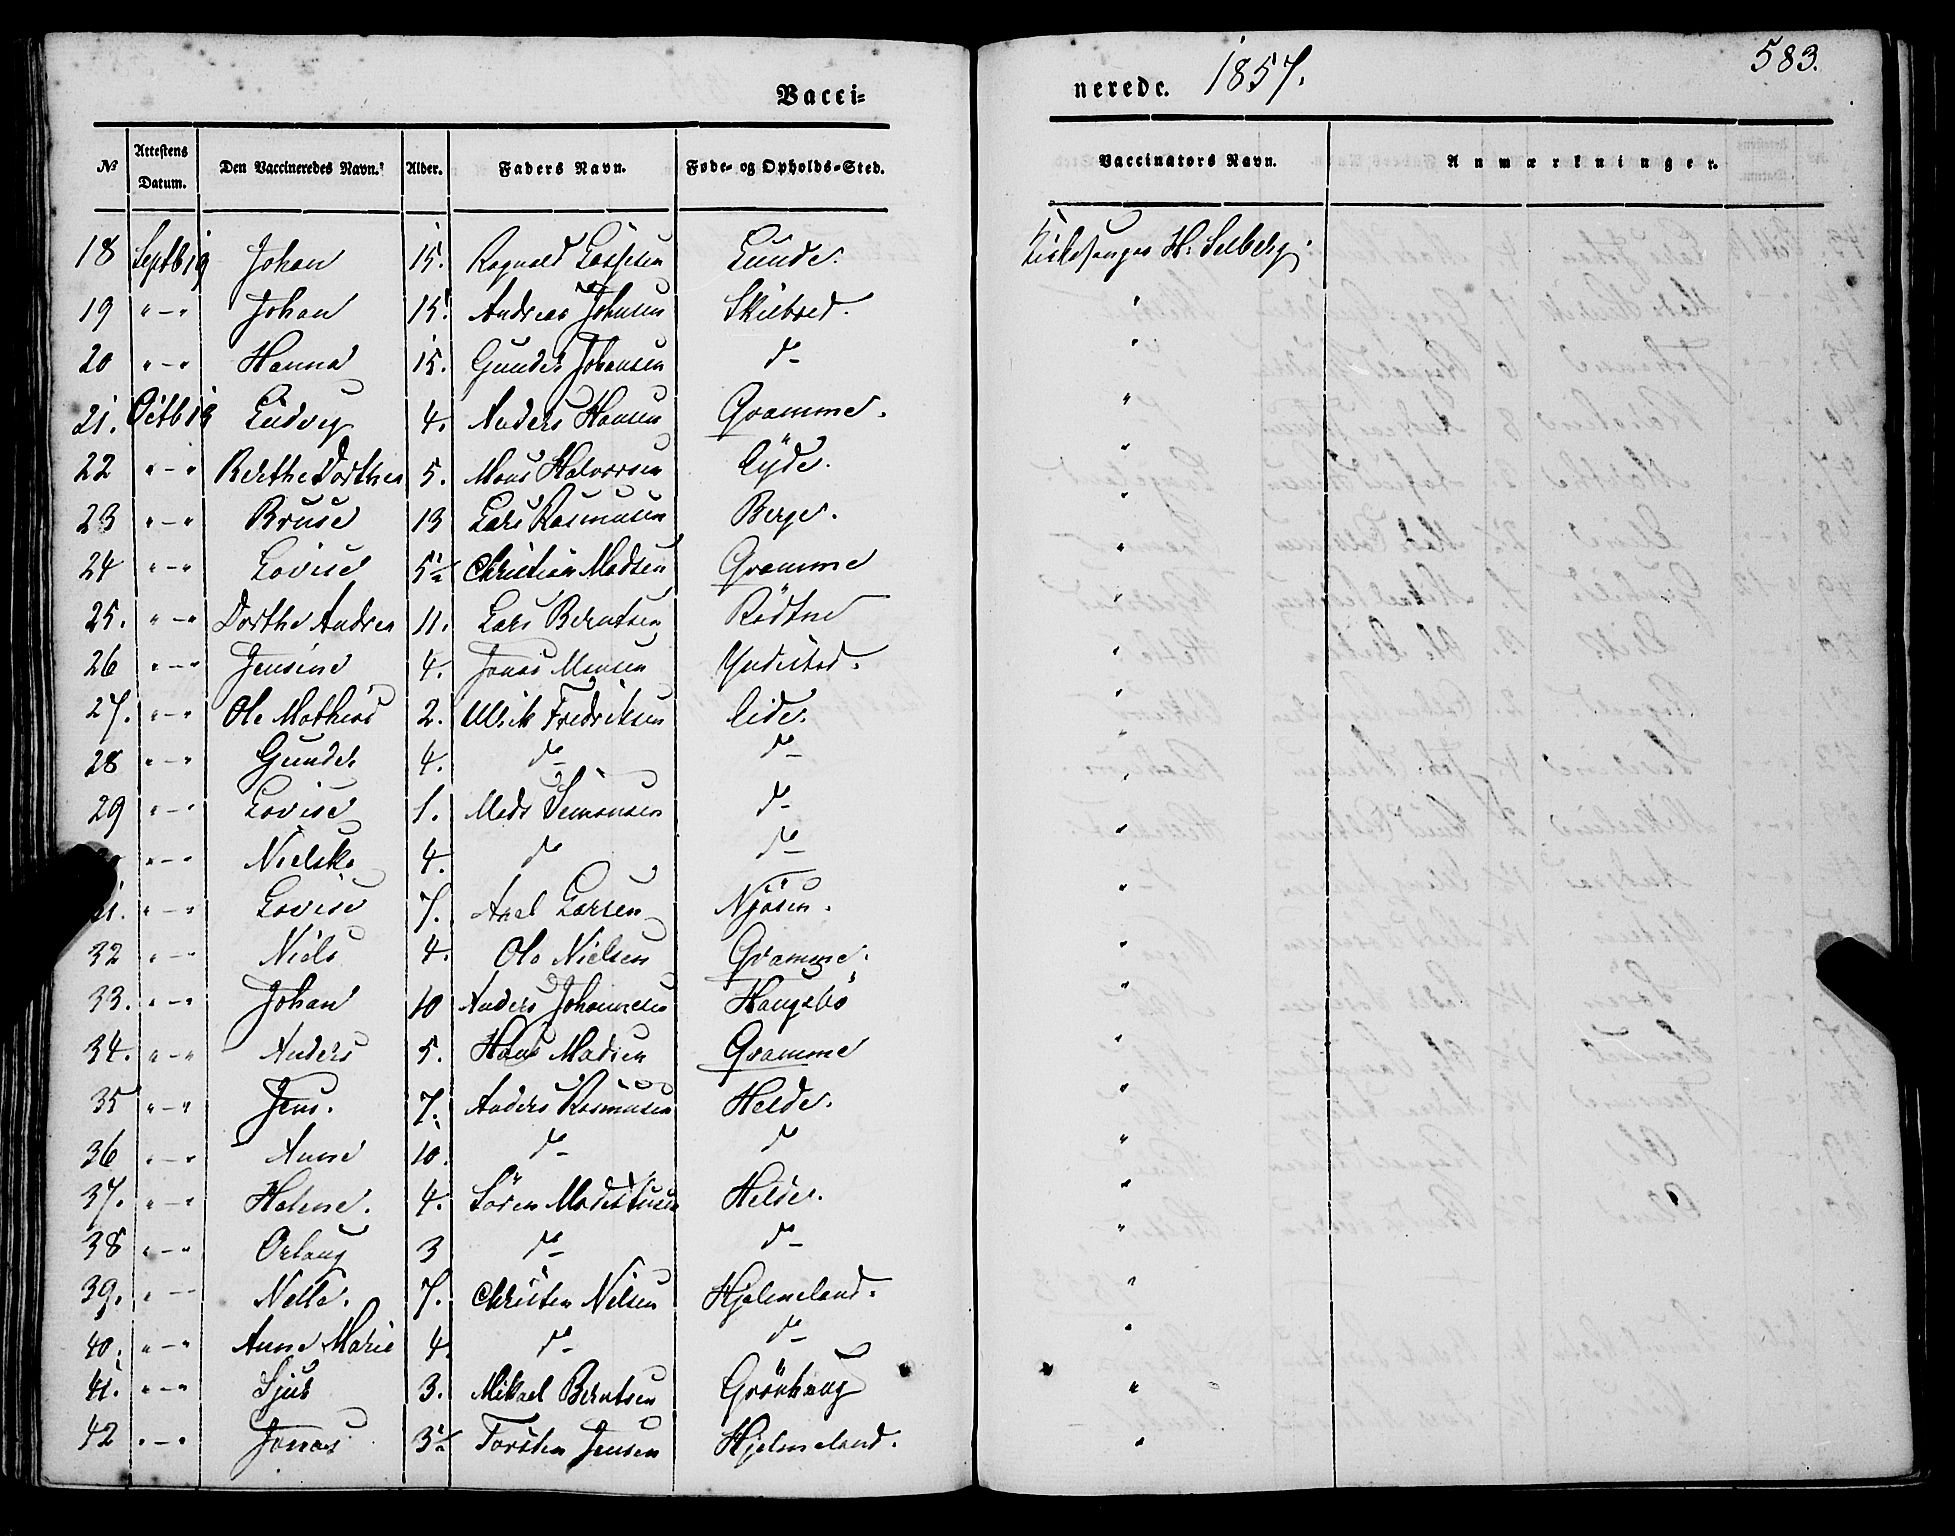 Vacci=
nerede. 1857.
583.
No Attestens Datum. Den Vaccineredes Navn. Alder. Faders Navn. Føde- og Opholds-Sted. Vaccinators Navn. Anmærkninger.
18 Septb 19 Johan 15. Ragnald Lassesen Lunde. Kirkesanger H. Selberg.
19 " - " Johan 15. Andreas Johnsen Skilbred. "
20 " - " Hanna 15. Gunder Johansen do "
21. Octb 19 Ludvig 4. Anders Hansen Gramme. "
22 " - " Berthe Dorthea 5. Mons Halvorsen Eyde. "
23 " - " Bruse 13 Lars Rasmusen Berge. "
24 " - " Lovise 5½ Christian Madsen Gramme "
25. " - " Dorthe Andrea 11. Lars Berntsen Rödtne "
26 " - " Jensine 4. Jonas Monsen Yndestad. "
27. " - " Ole Mathias 2. Ulrik Fredriksen Eide. "
28 " - " Gunder 4. do do "
29 " - " Lovise 1. Mads Simonsen do "
" - " Nielske 4. do do "
31. " - " Lovise 7. Axel Larsen Njösen. "
32 " - " Niels 4. Ole Nielsen Gramme. "
33. " - " Johan 10 Anders Johannesen Haugsbö "
34. " - " Anders 5. Hans Madsen Gramme "
35 " - " Jens. 7. Anders Rasmusen Helde. "
36 " - " Anne 10. do do "
37. " - " Helene. 4. Sören Modestusen Helde. "
38 " - " Orlaug 3 do do "
39. " - " Nelle. 7. Christen Nilsen Hjelmeland. "
40. " - " Anne Marie 4. do do "
41. " - " Sjur 3. Mikael Berntsen Grönhaug "
42 " - " Jonas 3½ Torsten Jensen Hjelmeland. "